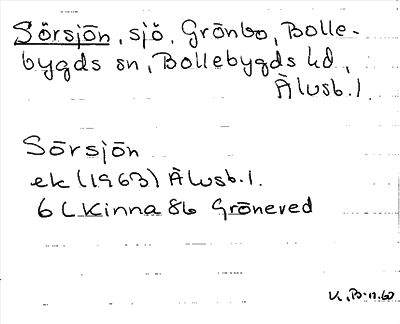 Sörsjön, sjö, Grönbo, Bolle-
bygds sn, Bollebygds hd,
Älvsb. l.
Sörsjön
ek (1963) Älvsb. l.
6 C Kinna 8b Gröneved